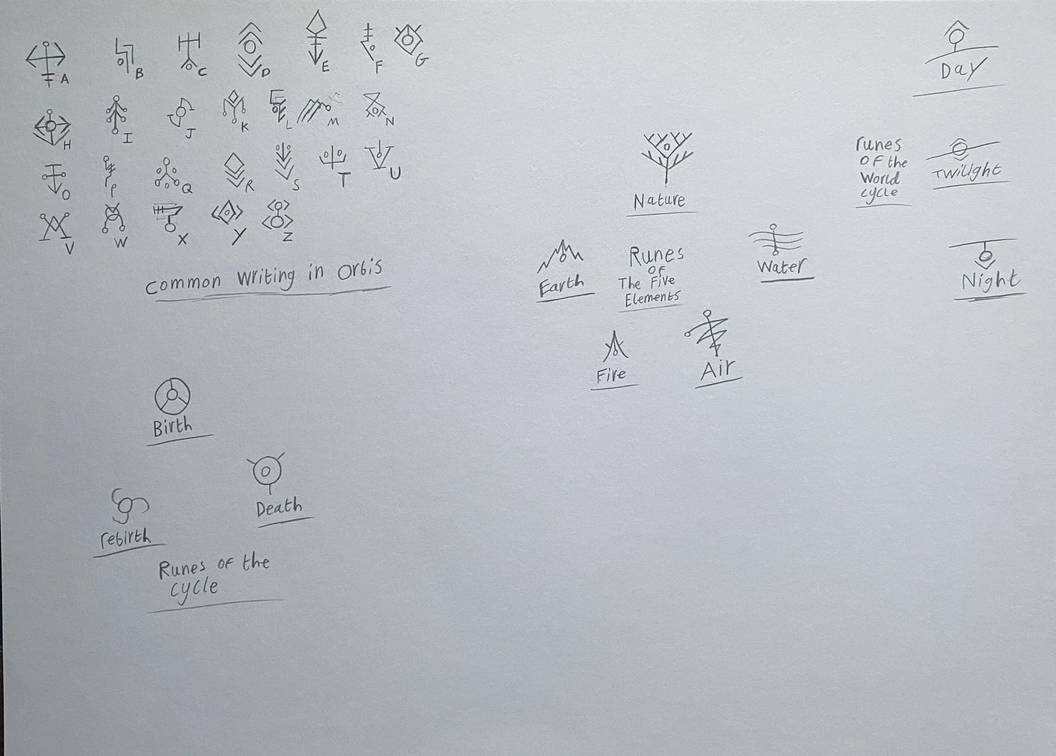 A B C D E F G
H I J K L M N
O P Q R S T U
V W X Y Z
Common Writing in Orbis
Day
Runes
OF the
World
cycle
Twilight
Night
Nature
Earth
Runes
OF
The Five
Elements
Water
Fire
Air
Birth
Death
rebirth
Runes OF the
cycle